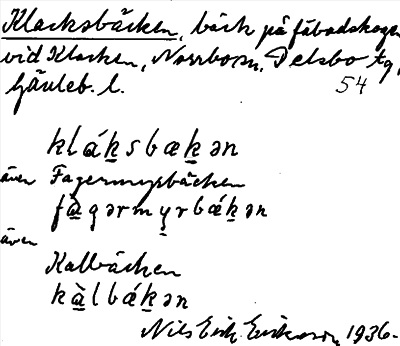 Klacksbäcken, bäck på fäbodskogen
vid Klacken, Norrbobyn, Delsbo tg,
Gävleb. l. 54
klák̲sbæk̲ən
även Fagermyrbäcken
fà̲gərmy̲rbák̲ən
även
Kallbäcken
kà̲lbák̲ən
Nils Erik Eriksson 1936.